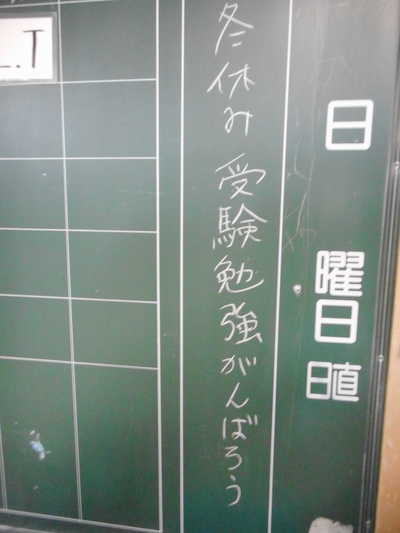 日
曜日
日直
冬休み 受験勉強がんばろう
L.T